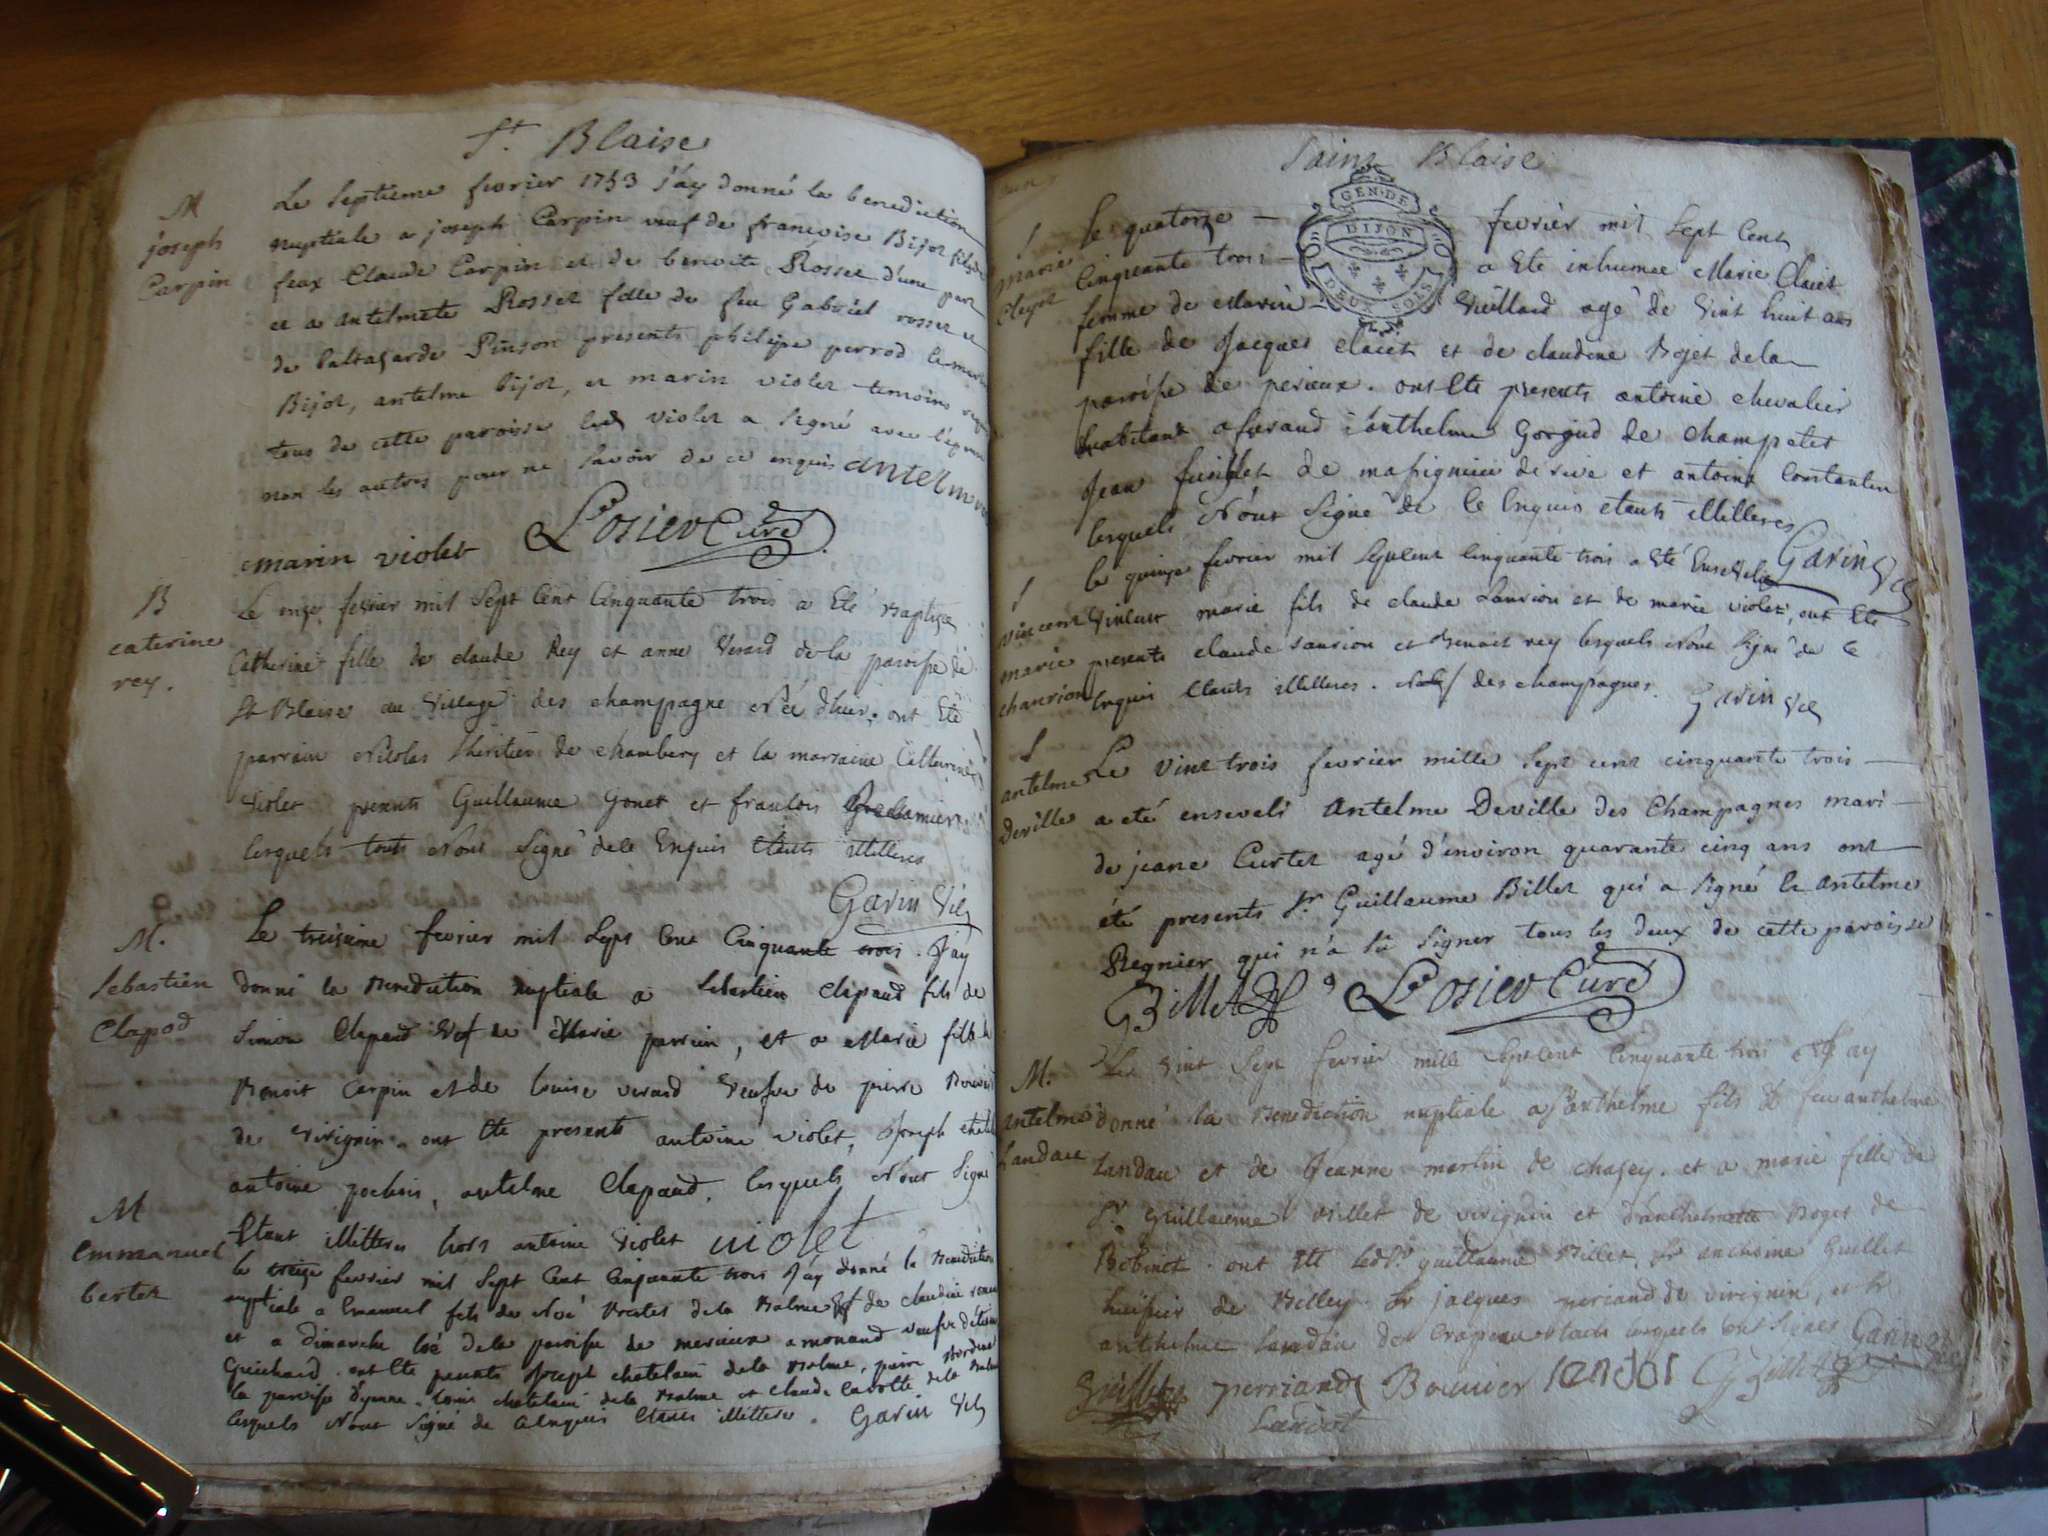 St. Blaise
M
joseph
Carpin
Le septieme fevrier 1753 j'ay donné la benediction
nuptiale a joseph Carpin veuf de francoise Bijot fils de
feux Claude Carpin et de benoite Rosset d'une part
et a antelmete Rosset fille de feu Gabriel rosset et
de baltasarde Pinson presents philippe perrod
Bijot, antelme bijot, et marin violet temoins
tous de cette paroisse led violet a signé avec l'epoux
non les autres pour ne savoir de ce enquis antelm
marin violet L'osier Curé
B
caterine
rey.
Le onze fevrier mil sept Cent Cinquante trois a Eté Baptizé
Catherine fille de claude Rey et anne Verard de la paroisse de
St Blaise au village des champagne Née d'hier. ont Eté
parrain Nicolas lheritier de chambery et la marraine Catherine
violet presents Guillaume Gonet et francois
lesquels touts n'ont signé de ce Enquis Etants illiteres
Garin Vic
M.
sebastien
Clapod
Le treisieme fevrier mil sept Cent Cinquante trois. J'ay
donné la Benediction nuptiale a sebastien Clapaud fils de
Simon Clapaud Vef de Marie perrin, et a Marie fille de
Benoit Carpin et de louise verard veufve de pierre
de virignin. ont Ete presents antoine violet, Joseph
antoine, antelme Clapaud, lesquels n'ont signé
Etant illitteres hors antoine violet violet
M
emmanuel
berter
le treize fevrier mil sept Cent Cinquante trois J'ay donné la Benediction
nuptiale a Emanuel fils de Noé de la Balme Vf de claudine
et a dimanche de la paroisse de merieux amonand veufve
Guichard. ont Ete presents Joseph chatelain de la Balme, pierre
la paroisse d'yenne. louis chatelain de la Balme et claude de la Balme
lesquels N'ont signé de ce enquis Etants illitteres. Garin Vic
Saint Blaise
GEN. DE
DIJON
DEUX SOLS
S
marie
Cleyet
le quatorze — fevrier mil sept Cent
Cinquante trois — a Ete inhumee Marie Claiet
femme de Marin — Vuillard agé de vint huit ans
fille de Jacques Claiet et de claudine Bojet de la
paroisse de perieux. ont Ete presents antoine chevalier
habitant a furand, anthelme Gojoud de champetel
Jean de massignieu de rive et antoine Constantin
lesquels N'ont signé de Ce Enquis etants illitteres
Garin Vic
S
vincent
marie
chaurion
le quinze fevrier mil septcent Cinquante trois a Eté Enseveli
vincent marie fils de claude saurion et de marie violet, ont Ete
presents claude saurion et Benoit rey lesquels n'ont signé de Ce
Enquis Etants illitteres. des champagnes. Garin Vic
S
antelme
Deville
Le vint trois fevrier mille sept cent cinquante trois —
a eté enseveli Antelme Deville des Champagnes mari —
de jeane Curtet agé d'environ quarante cinq ans ont —
été presents Sr Guillaume Billet qui a signé et antelme
Regnier qui n'a sû signer tous les deux de cette paroisse
GBillet L'osier Curé
M.
antelme
Landau
Le vint sept fevrier mille septcent Cinquante trois J'ay
donné la Benediction nuptiale a anthelme fils de feu anthelme
Landau et de Jeanne martin de chasey. et a marie fille de
Sr Guillaume Billet de virignin et d'anthelmette Boget de
Bobinet. ont Ete led Sr guillaume Billet, Sr anthelme Guillet
huissier de Belley. Sr jacques perraud de virignin, et Sr
anthelme Landau de lesquels ont signés Garin Vic
Guillet perriand Bouvier lendot GBillet
Landot